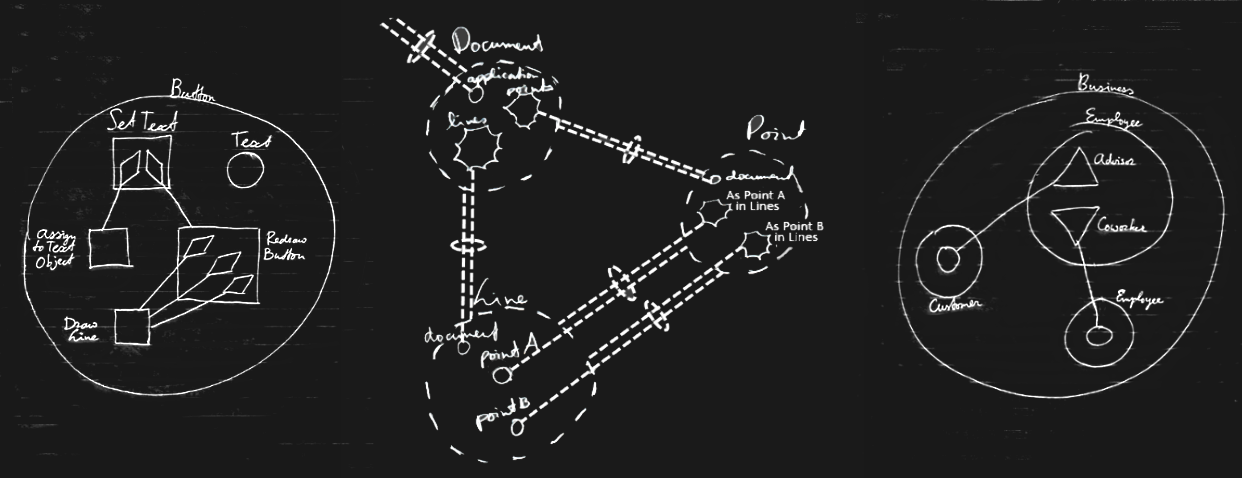 Button
Set Text
Text
Assign
to Text
Object
Redraw
Button
Draw
Line
Document
application
points
lines
Point
document
As Point A
in Lines
As Point B
in Lines
Line
document
point A
point B
Business
Employee
Advisor
Coworker
Customer
Employee